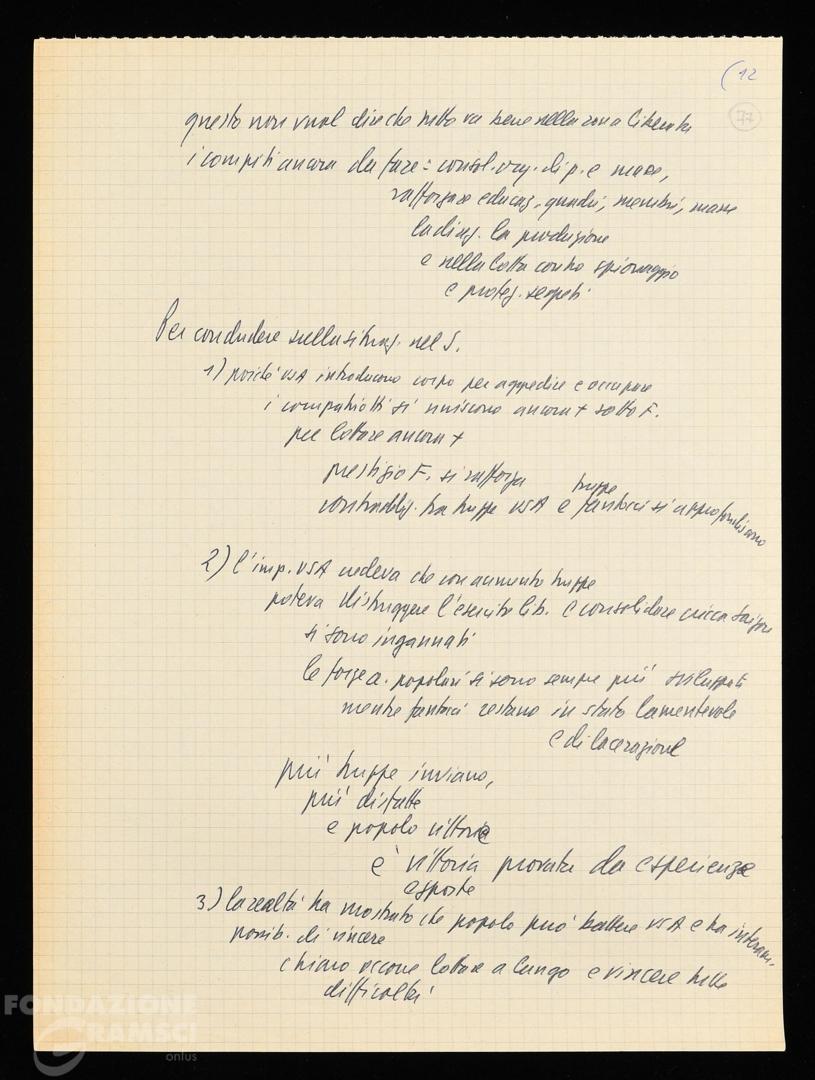 (12
77
questo non vuol dire che tutto va bene nella zona liberata
i compiti ancora da fare: consol. org. di p. e masse,
rafforzare educaz. quadri, membri, masse
la direz. la produzione
e nella lotta contro spionaggio
e proteg. segreti
Per concludere sulla situaz. nel S.
1) poiché USA introducono corpo per aggredire e occupare
i compatrioti si uniscono ancora + sotto F.
per lottare ancora +
prestigio F. si rafforza
contraddiz. tra truppe USA e truppe fantocci si approfondiscono
2) l'imp. USA credeva che con aumento truppe
poteva distruggere l'esercito lib. e consolidare cricca Saigon
si sono ingannati
le forze a. popolari si sono sempre più sviluppate
mentre fantocci restano in stato lamentevole
e di lacerazione
più truppe inviano,
più disfatte
e popolo vittorie
è vittoria provata da esperienze
esposte
3) la realtà ha mostrato che popolo può battere USA e ha interam.
possib. di vincere
chiaro occorre lottare a lungo e vincere tutte
difficoltà
FONDAZIONE
GRAMSCI
onlus